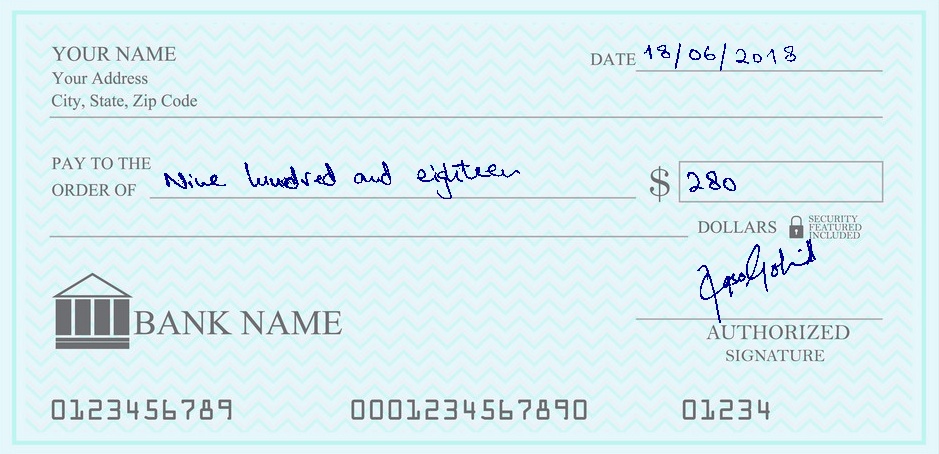 YOUR NAME
Your Address
City, State, Zip Code
DATE 18/06/2018
PAY TO THE
ORDER OF Nine hundred and eighteen $ 280
DOLLARS SECURITY
FEATURED
INCLUDED
BANK NAME
AUTHORIZED
SIGNATURE
0123456789 0001234567890 01234